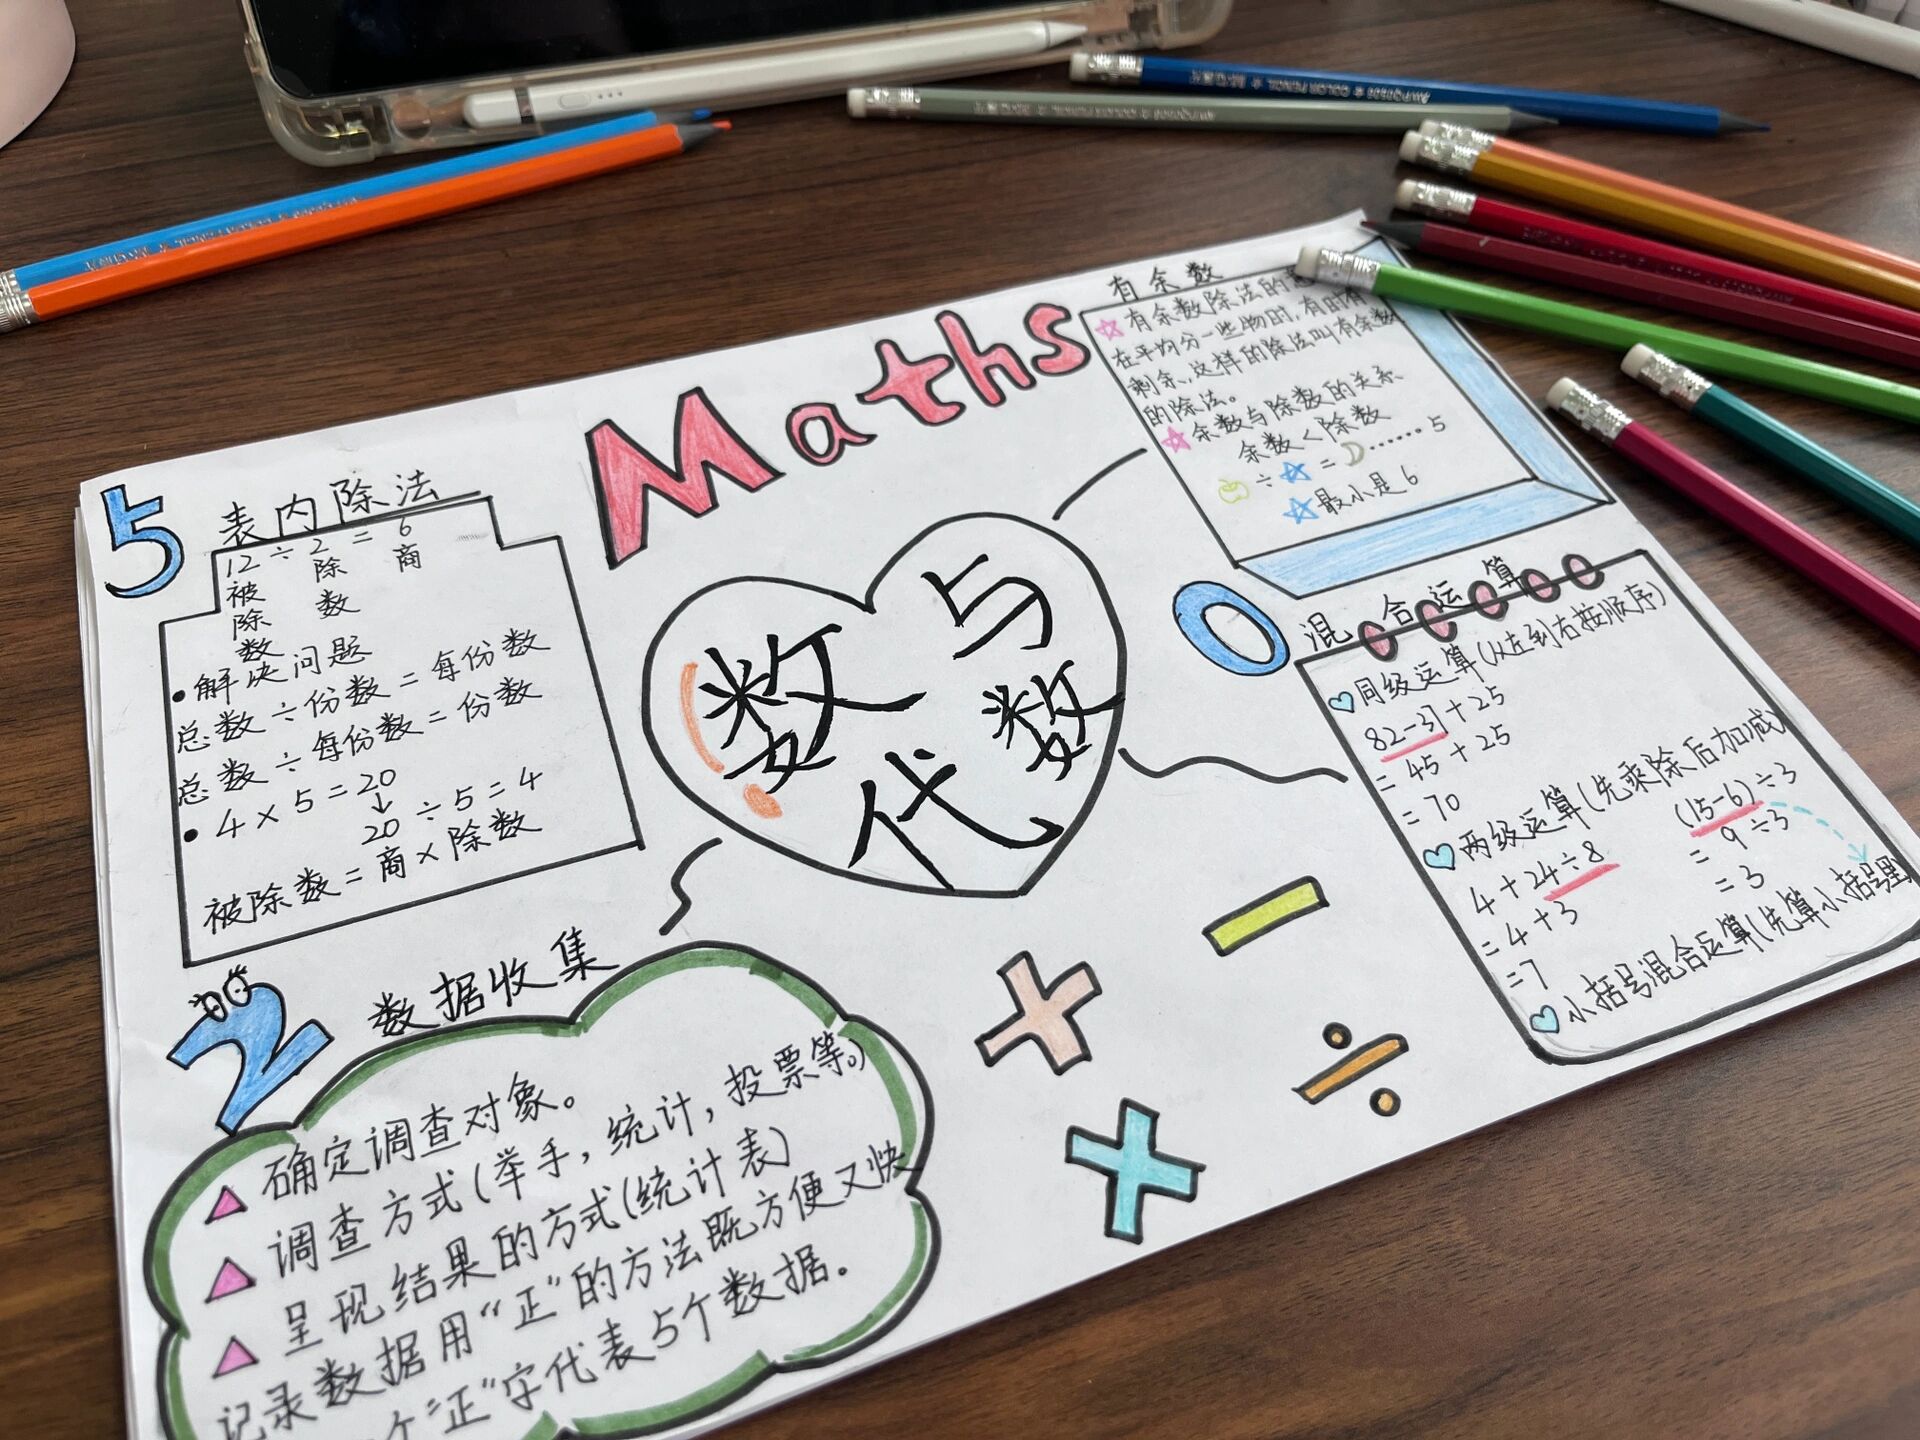 Maths
数与
代数
5
表内除法
12÷2=6
被除数
除数
商
•解决问题
总数÷份数=每份数
总数÷每份数=份数
•4×5=20
↓
20÷5=4
被除数=商×除数
有余数
有余数除法的
在平均分一些物时,有时有
剩余,这样的除法叫有余数
的除法。
余数与除数的关系
余数<除数
÷☆=……5
☆最小是6
0
混合运算
同级运算(从左到右按顺序)
82-37+25
=45+25
=70
两级运算(先乘除后加减)
4+24÷8
=4+3
=7
(15-6)÷3
=9÷3
=3
小括号混合运算(先算小括号里
2
数据收集
确定调查对象。
调查方式(举手,统计,投票等。)
呈现结果的方式(统计表)
记录数据用“正”的方法既方便又快
个“正”字代表5个数据.
+
−
×
÷
COLOR PENCIL